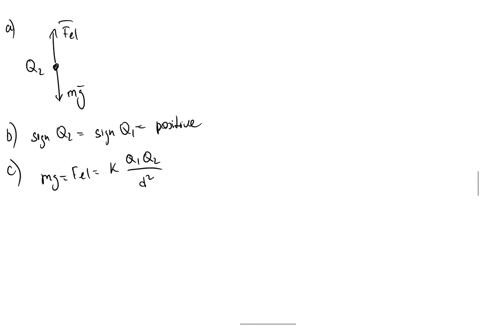 a)
F̅el
Q₂
mg̅
b) sign Q₂ = sign Q₁ = positive
c) mg = Fel = K Q₁Q₂/d²